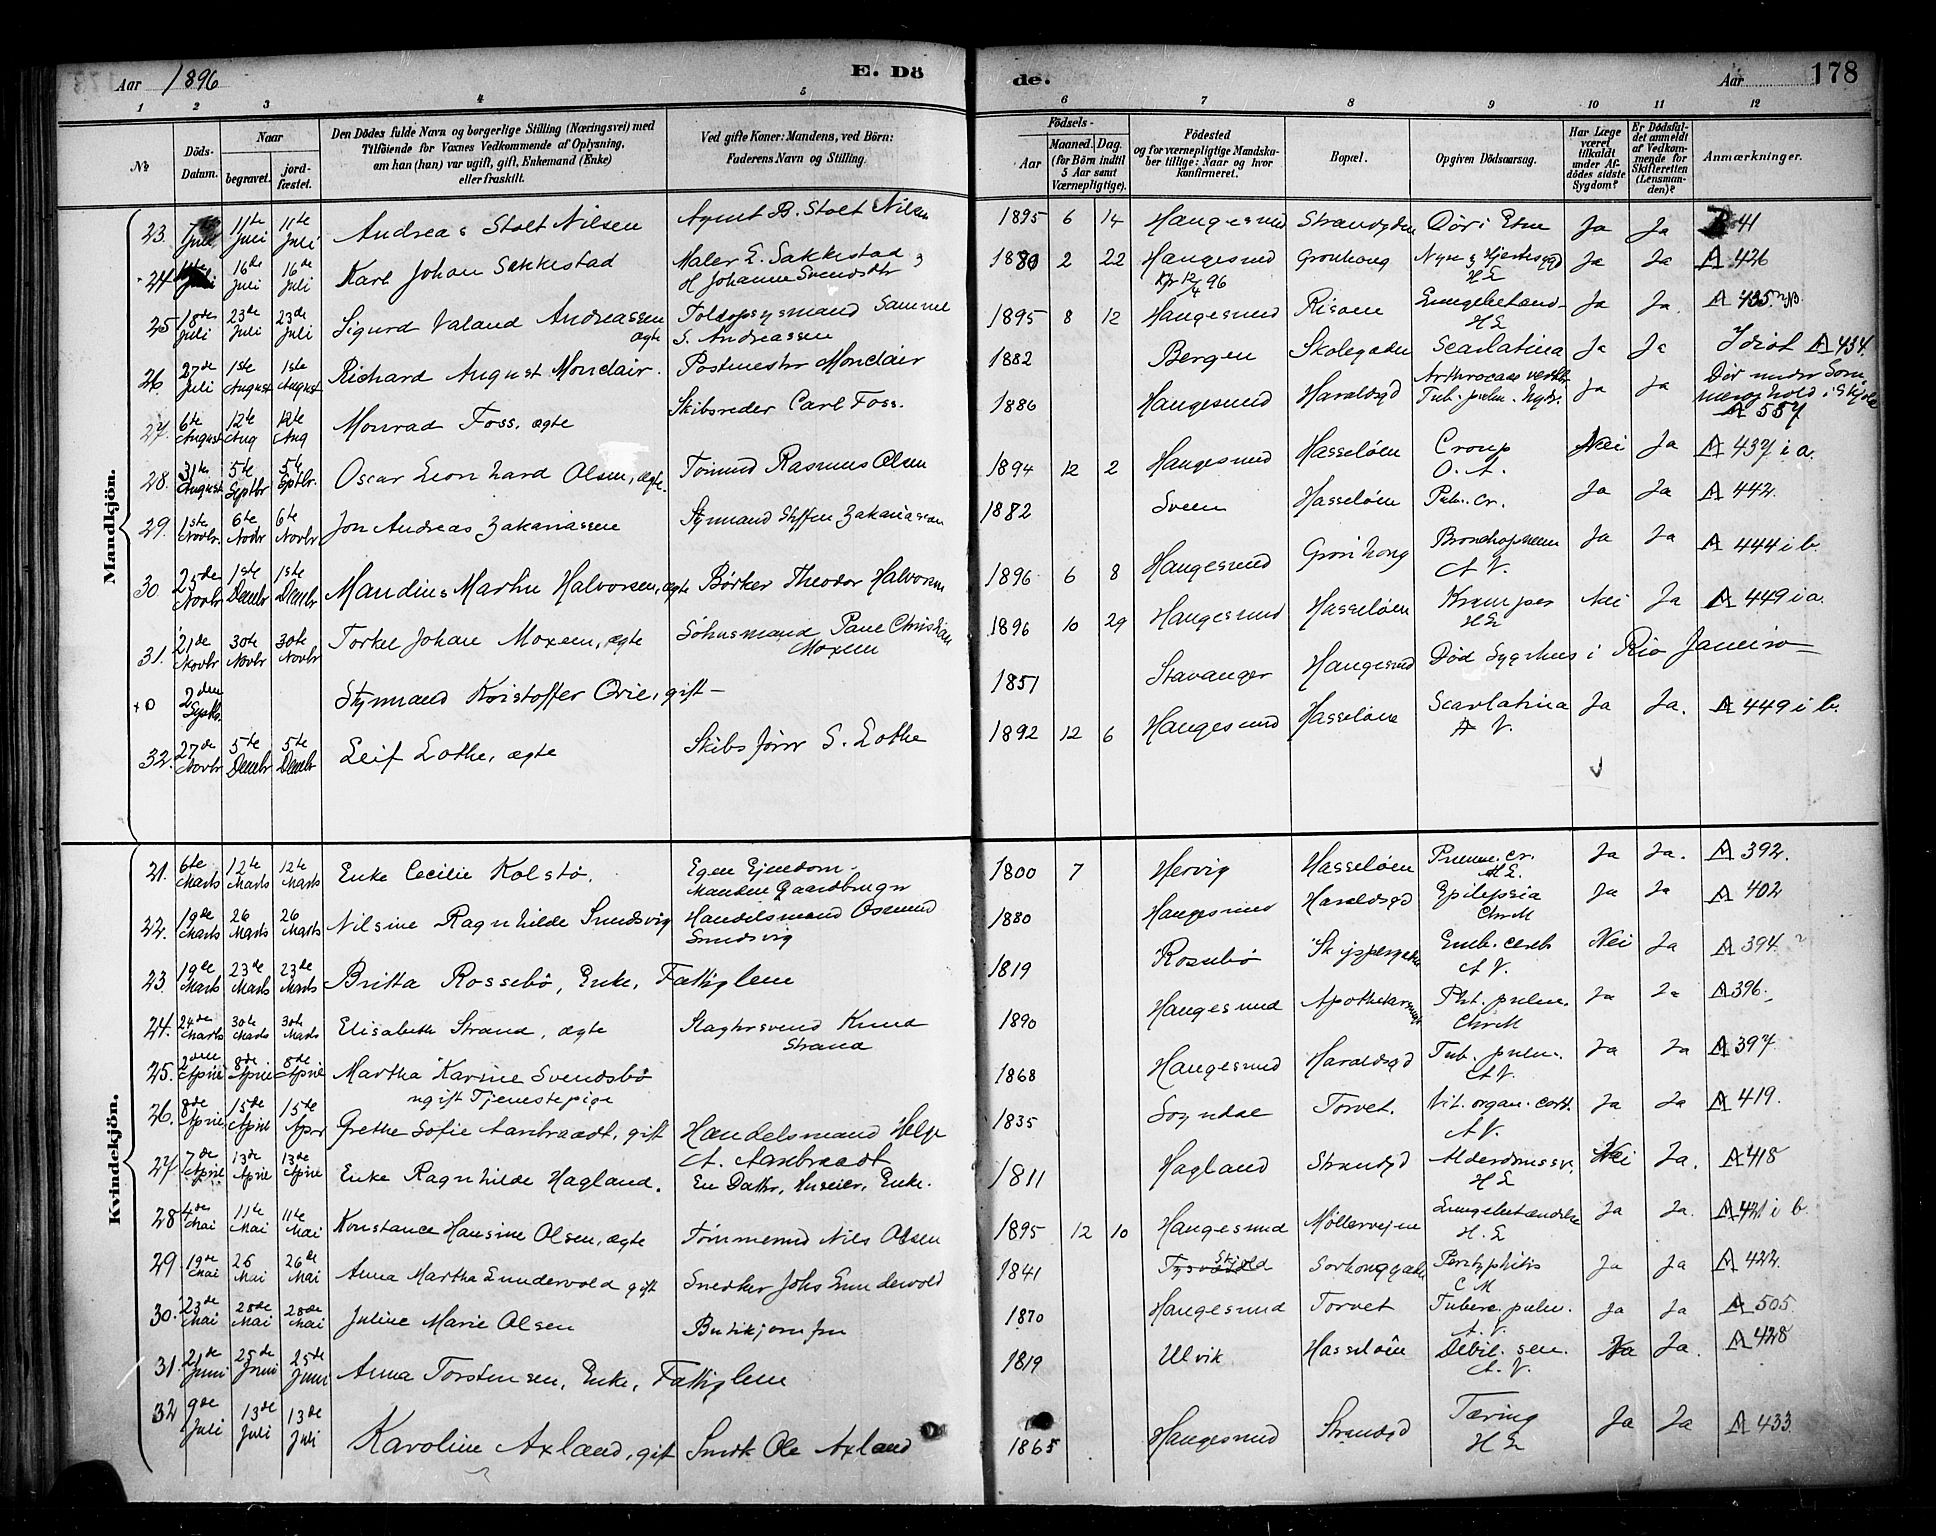 Aar 1896 E. Dö de. Aar 178
1 2 3 4 5 6 7 8 9 10 11 12
No
Döds-Datum.
Naar
begravet.
jord-fæstet.
Den Dödes fulde Navn og borgerlige Stilling (Næringsvei) med
Tilföiende for Voxnes Vedkommende af Oplysning,
om han (hun) var ugift, gift, Enkemand (Enke)
eller fraskilt.
Ved gifte Koner: Mandens, ved Börn:
Faderens Navn og Stilling.
Födsels-
Aar
Maaned. Dag.
(for Börn indtil
5 Aar samt
Værnepligtige).
Födested
og for værnepligtige Mandska-
ber tillige: Naar og hvor
konfirmeret.
Bopæl.
Opgiven Dödsaarsag.
Har Læge
været
tilkaldt
under Af-
dödes sidste
Sygdom?
Er Dödsfal-
det anmeldt
af Vedkom-
mende for
Skifteretten
(Lensman-
den)?
Anmærkninger.
Mandkjön.
23. Juli 11te Juli 11te Juli Andreas Stolt Nilsen Agent B. Stolt Nilsen 1895 6 14 Haugesund Strandgaden Ja Ja 41
24 Juli 16de Juli 16de Juli Karl Johan Sakkestad Maler E. Sakkestad og H Johanne Svendsdtr 1880 2 22 Haugesund Kfr 12/4 96 Gronhoug H E Ja Ja A 426
25 18de Juli 23de Juli 23de Juli Sigurd Valand Andreassen ægte Toldopsynsmand Samuel S. Andreassen 1895 8 12 Haugesund Risøen Lungebetænd H E Ja Ja. A 435
26. 27de Juli 1ste August 1ste August Richard August Monclair. Postmester Monclair 1882 Bergen Skolegaden Scarlatina Ja Ja Idiot A 434.
27. 6te August 12te Aug 12te Aug Monrad Foss, ægte Skibsreder Carl Foss. 1886 Haugesund Haraldsgd Tub. pulm. Ja Ja Dör under A 557
28. 31te August 5te Septbr 5te Septbr. Oscar Leonhard Olsen, ægte. Tømmd Rasmus Olsen 1894 12 2 Haugesund Hasseløen Croup O. A. Nei Ja A 437 i a.
29. 1ste Novbr. 6te Novbr 6te Novbr Jon Andreas Zakariassen Styrmand Steffen Zakariassen 1882 Sveen Hasseløen Puln. cr. Ja Ja A 442.
30. 25de Novbr 1ste Decmbr 1ste Decmbr Maudius Martin Halvorsen, ægte Bødker Theodor Halvorsen 1896 6 8 Haugesund Grønhoug Bronchopneum A V. Ja Ja A 444 i b.
31. 21de Novbr 30te Novbr 30te Novbr Torkel Johan Moxen, ægte Søhusmand Paul Christian Moxen 1896 10 29 Haugesund Hasseløen Kramper H E Nei Ja A 449 i a.
+0 2den Septbr Styrmand Kristoffer Qvie, gift 1851 Stavanger Haugesund Død Sygehus i Rio Janeiro
32. 27de Novbr 5te Decmbr 5te Decmbr Leif Lothe, ægte Skibsfører S. Lothe 1892 12 6 Haugesund Hasseløen Scarlatina A V. Ja Ja. A 449 i b.
Kvindekjön.
21. 6te Marts 12te Marts 12te Marts Enke Cecilie Kolstö. Egen Ejendom. Manden Gaardbruger 1800 7 Hervig Hasseløen Pneum. cr. H E. Ja Ja. A 392.
22. 19de Marts 26 Marts 26 Marts Nilsine Ragnhilde Sundsvig Handelsmand Osmund Sundsvig 1880 Haugesund Haraldsgd Epilepsia Chr M Ja Ja A 402
23. 19de Marts 23de Marts 23de Marts Britta Rossebö, Enke, Fattiglem 1819 Rossebö Skippergaden Emb. cereb A V. Nei Ja A 394
24. 24de Marts 30te Marts 30te Marts Elisabeth Strand, ægte Slagtersvend Knud Strand 1890 Haugesund Apothekersmuget Pht. pulm. Chr M Ja Ja A 396.
25. 2den April 8de April 8de April Martha Karine Svendsbö ugift Tjenestepige 1868 Haugesund Haraldsgd Tub. pulm. A V. Ja Ja A 397.
26. 8de April 15de April 15de Apr Grethe Sofie Aanbraadt, gift Handelsmand Helje A. Aanbraadt 1835 Sogndal Torvet. Vit. organ. cord. A V. Ja Ja A 419.
27 7de April 13de April 13de April Enke Ragnhilde Hagland. En Datter, Huseier, Enke. 1811 Hagland Strandgd Alderdomssv. H E Nei Ja. A 418
28 4de Mai 11te Mai 11te Mai Konstance Hansine Olsen, ægte Tømmermd Nils Olsen 1895 12 10 Haugesund Møllervejen Lungebetændelse H. E Ja Ja. A 421 i b.
29 19de Mai 26 Mai 26de Mai Anna Martha Lundervold gift Snedker Johs Lundervold 1841 Skjold Sørhauggade Perityphlitis C M Ja Ja A 422.
30. 23de Mai 28de Mai 28de Mai Juline Marie Olsen Butikjomfru 1870 Haugesund Torvet Tuberc. pulm. A. V. Ja Ja A 505.
31. 21de Juni 25de Juni 25de Juni Anna Torstensen, Enke, Fattiglem 1819 Ulvik Hasseløen Debil. sen. A. V. Ja Ja. A 428
32 9de Juli 13de Juli 13de Juli Karoline Axland, gift Smed Ole Axland 1865 Haugesund Strandgd Tæring H E Ja Ja A 433.